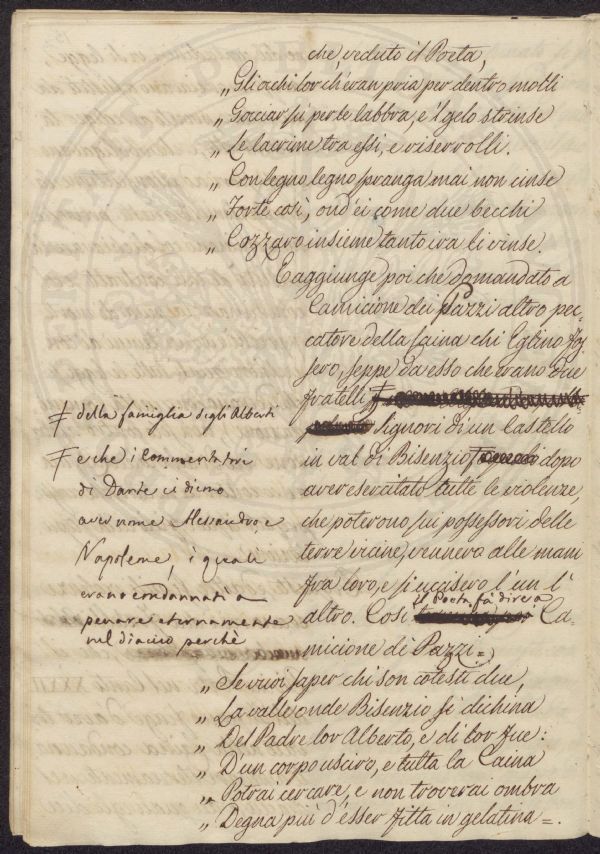 che, veduto il Poeta,
„ Gli ochi lor ch'eran pria per dentro molli
„ Gocciar sù per le labbra, e 'l gelo strinse
„ Le lacrime tra essi, e riserrolli.
„ Con legno, legno spranga mai non cinse
„ Forte così, ond'ei come due becchi
„ Cozzaro insieme tanto ira li vinse.
E aggiunge poi che domandato a
Camicione dei Pazzi altro pec-
catore della Caina chi Eglino fos-
sero, seppe da esso che erano due
fratelli Ŧ
Ŧ della famiglia degli Alberti
signori di un Castello
in val di Bisenzio Ŧ dopo
Ŧ e che i Commentatori
di Dante ci dicono
aver nome Alessandro, e
Napoleone, i quali
erano condannati a
penare eternamente
nel diaccio perchè
aver esercitato tutte le violenze,
che poterono sui possessori delle
terre vicine, vennero alle mani
fra loro, e si uccisero l'un l'
altro. Così il Poeta fà dire a Ca-
micione di Pazzi =
„ Se vuoi saper chi son cotesti due,
„ La valle onde Bisenzio si dichina
„ Del Padre lor Alberto, e di lor fue:
„ D'un corpo usciro, e tutta la Caina
„ Potrai cercare, e non troverai ombra
„ Degna più d'esser fitta in gelatina =.